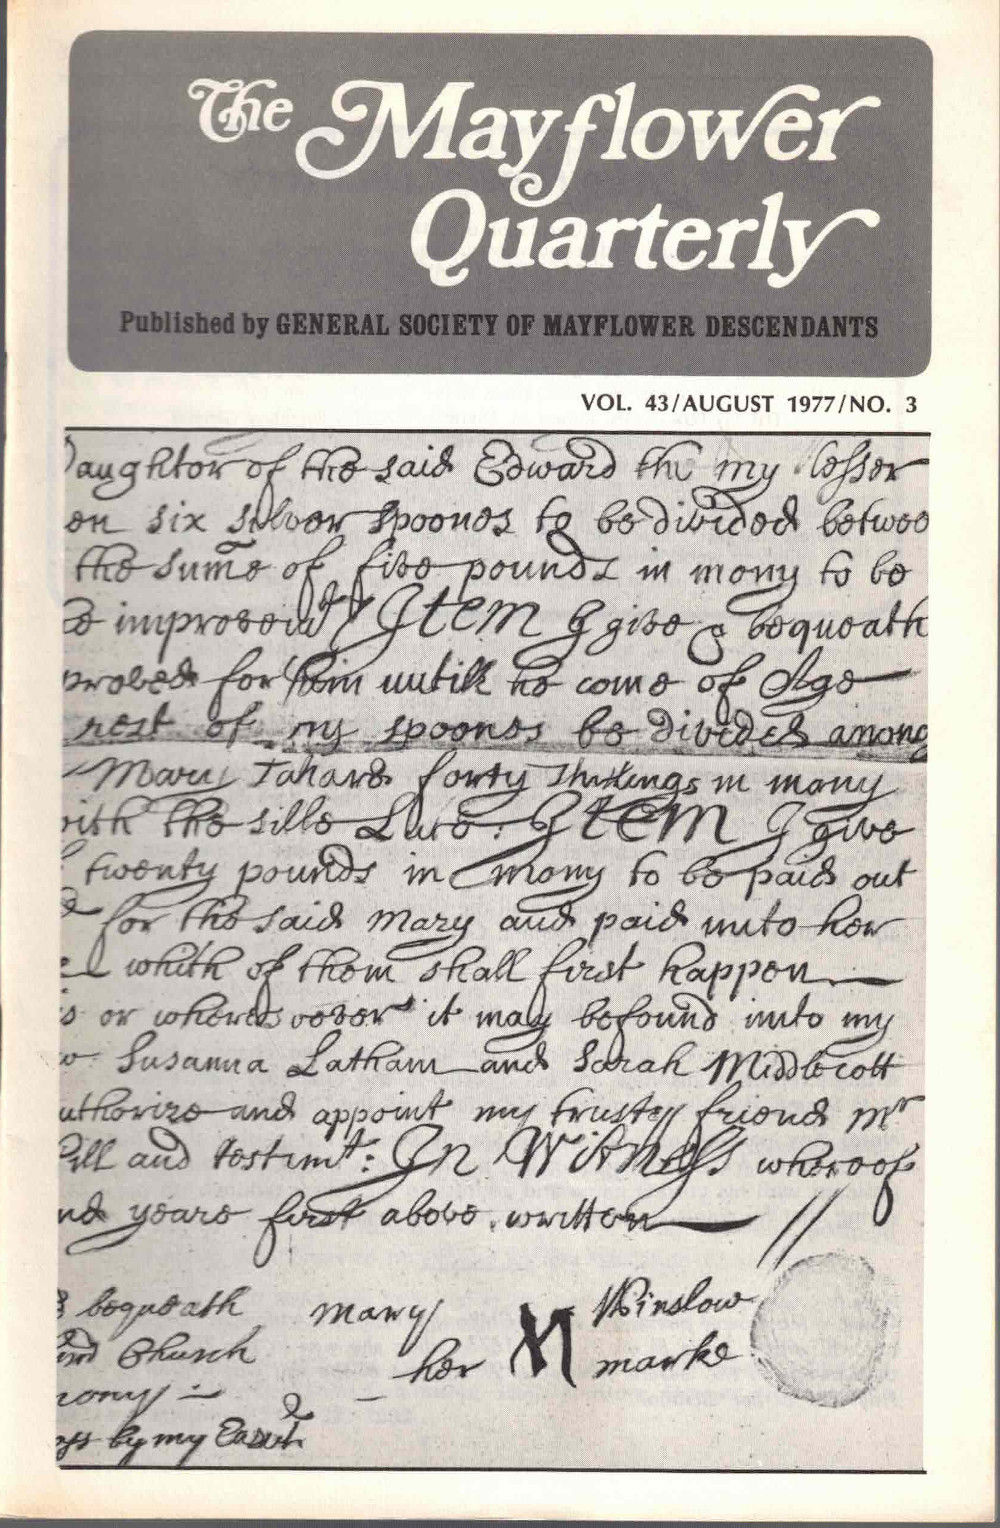 The Mayflower
Quarterly
Published by GENERAL SOCIETY OF MAYFLOWER DESCENDANTS
VOL. 43/AUGUST 1977/NO. 3
aughter of the said Edward the my lesser
en six silver spoones to be divided betwee
the sume of five pounds in mony to be
improved Item I give & bequeath
proved for him untill he come of Age
rest of my spoones be divided among
Mary Tahard forty Shillings in mony
with the sille Item I give
twenty pounds in mony to be paid out
for the said Mary and paid unto her
which of them shall first happen
s or wheresoever it may befound unto my
w Susanna Latham and Sarah Middlecott
uthorize and appoint my trusty friend Mr
Will and testimt: In Witness whereof
nd yeare first above written
bequeath Mary Winslow
Church her M marke
mony
by my